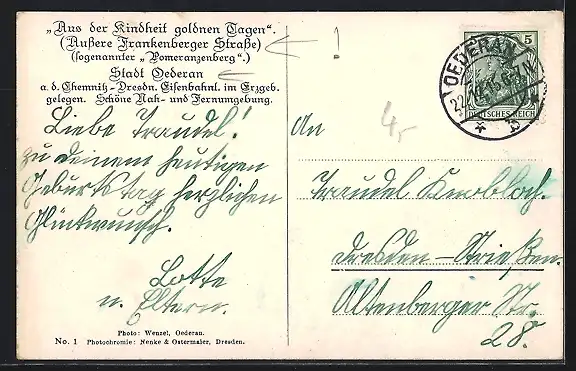 „Aus der Kindheit goldnen Tagen“.
(Äußere Frankenberger Straße)
(sogenannter „Pomeranzenberg“.)
Stadt Oederan
a. d. Chemnitz-Dresdn. Eisenbahnl. im Erzgeb.
gelegen. Schöne Nah- und Fernumgebung.
Liebe Traudel!
zu deinem heutigen
Geburtstag herzlichen
Glückwunsch.
Lotte
u. Eltern.
Photo: Wenzel, Oederan.
No. 1 Photochromie: Nenke & Ostermaier, Dresden.
!
4,-
5
DEUTSCHES REICH
OEDERAN
22
* b
An
Traudel Knobloch.
Dresden-Strießen.
Altenberger Str.
28.